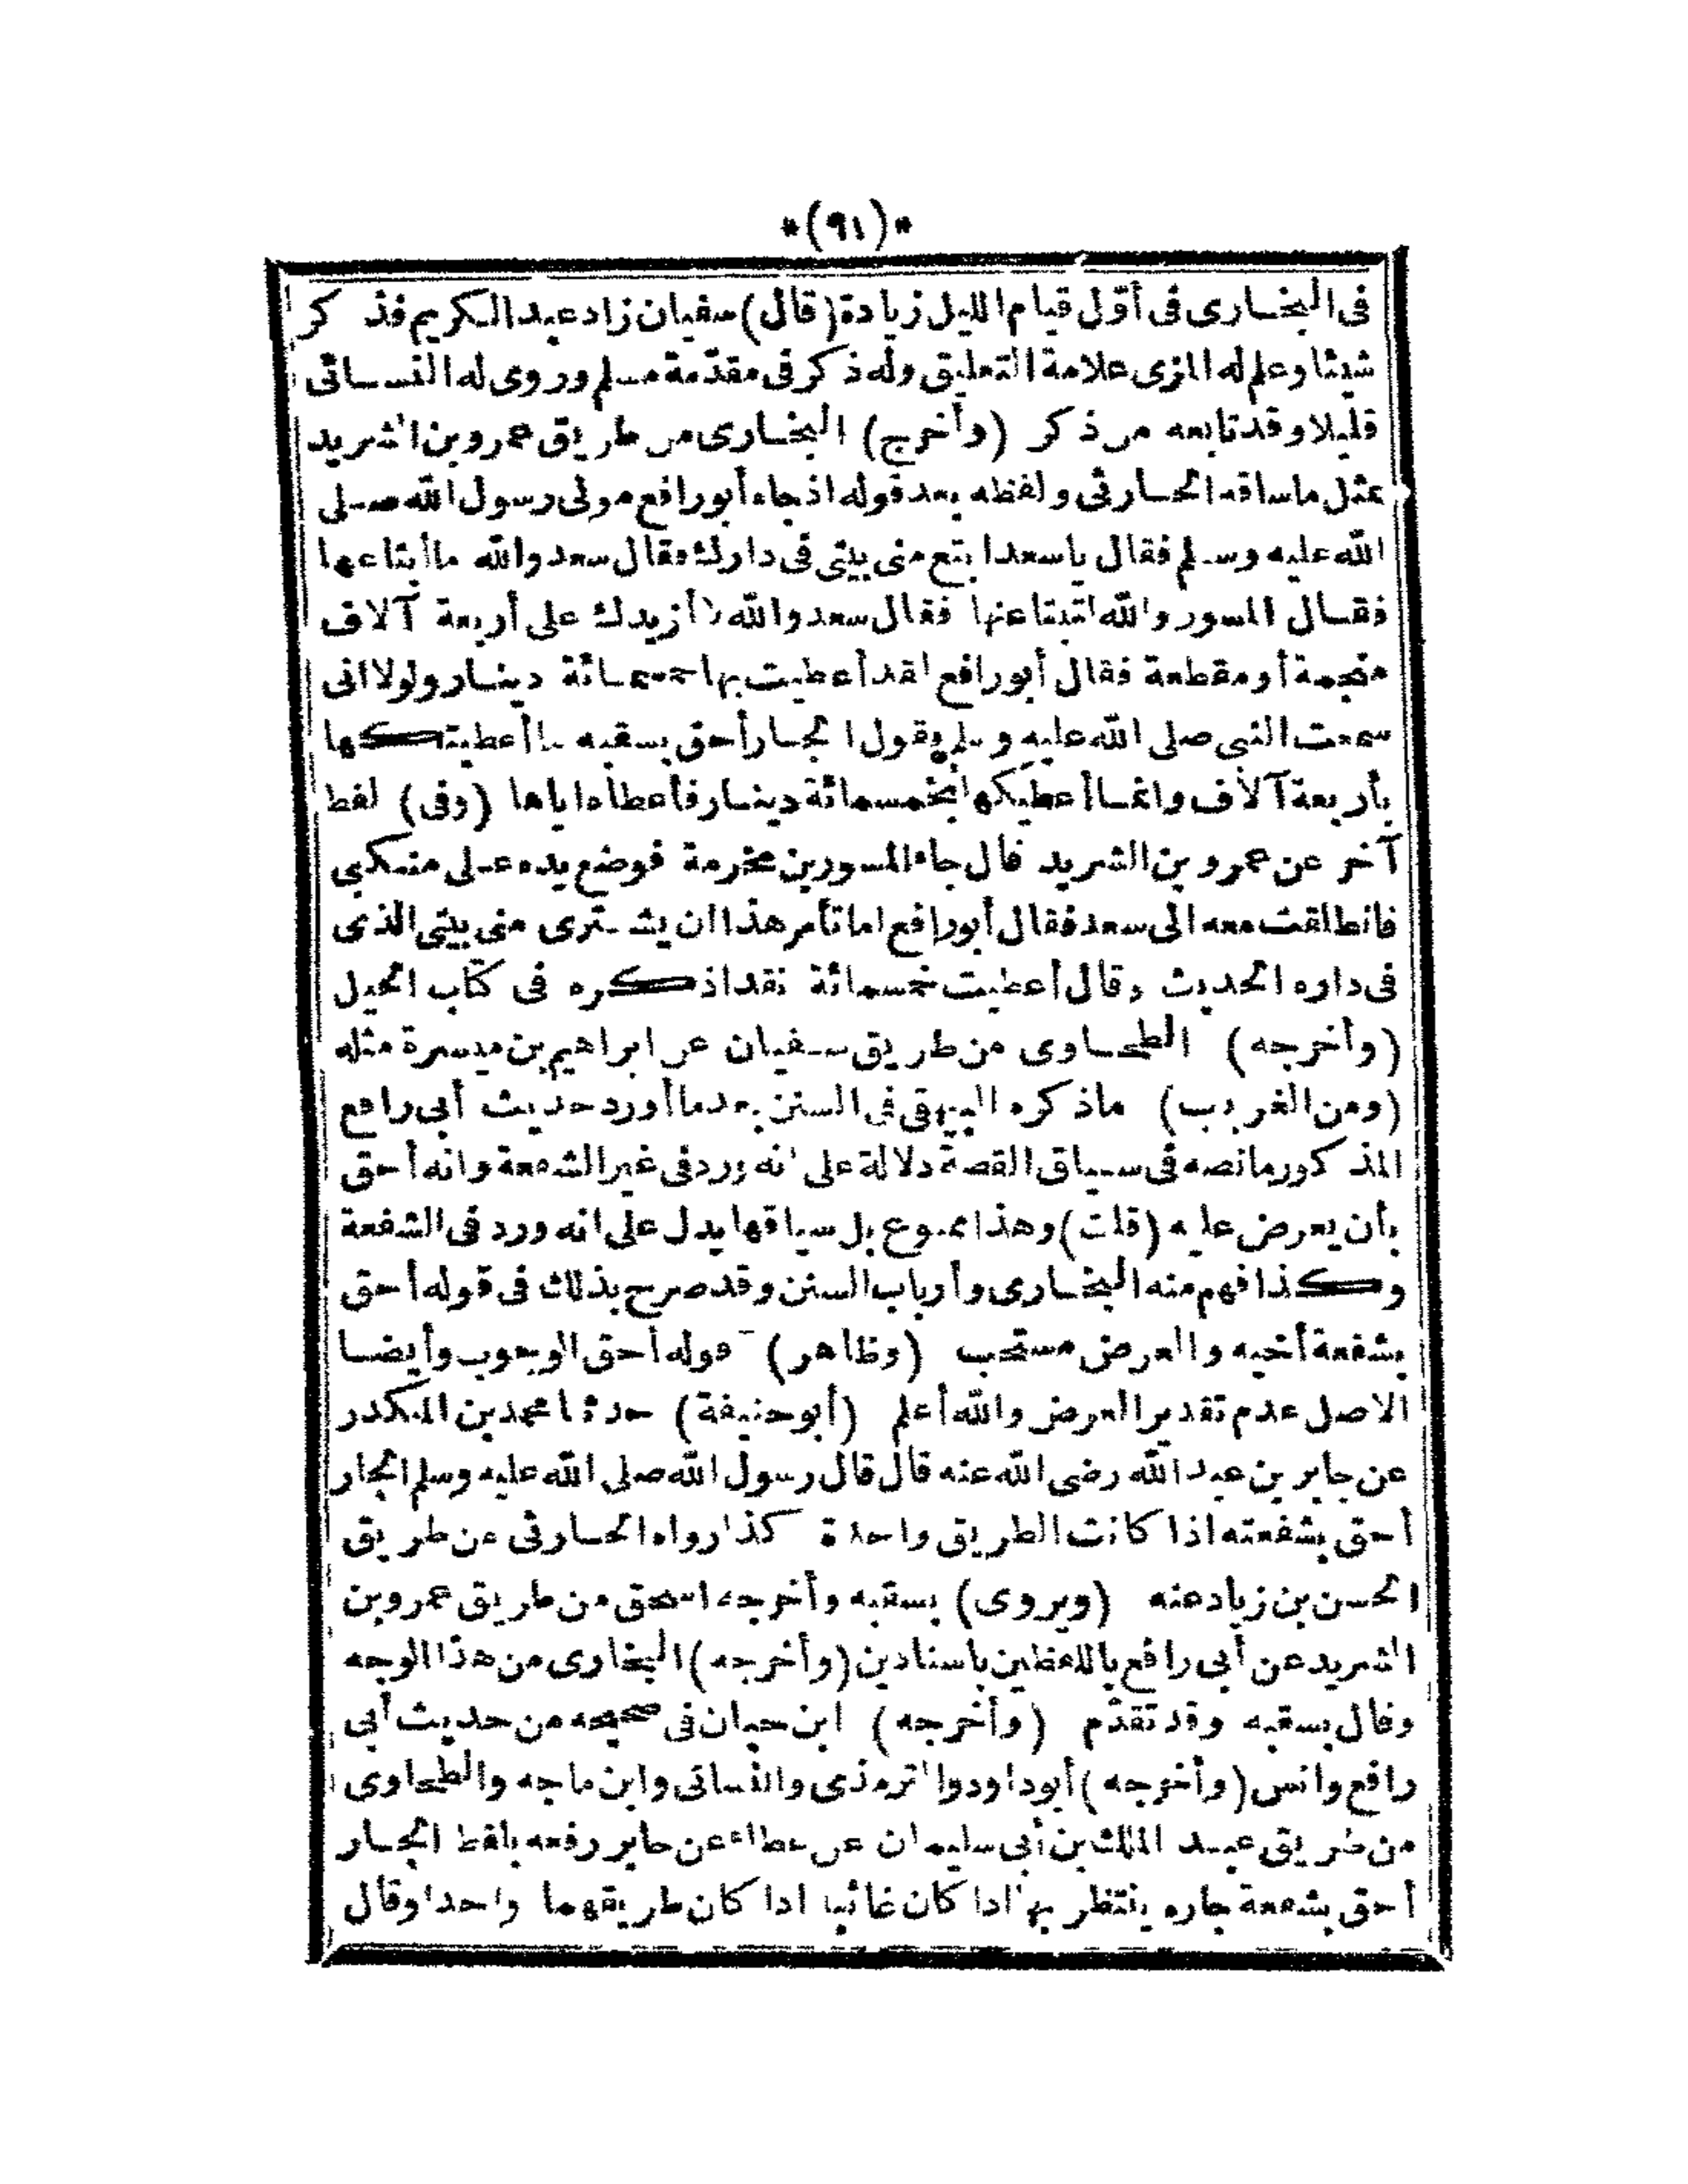 *(٩١)*
فى البخارى فى أوّل قيام الليل زيادة (قال) سفيان زاد عبد الكريم فذ كر
شيئا وعلم له المزى علامة التعليق وله ذكر فى مقدّمة مسلم وروى له النسائى
قليلا وقد تابعه من ذكر (وأخرج) البخارى من طريق عمرو بن الشريد
بمثل ما ساقه الحارثى ولفظه بعد قوله اذ جاء أبو رافع مولى رسول الله صلى
الله عليه وسلم فقال يا سعد ابتع منى بيتى فى دارك فقال سعد والله ما أبتاعها
فقال المسور والله لتبتاعنها فقال سعد والله لا أزيدك على أربعة آلاف
منجمة أو مقطعة فقال أبو رافع لقد أعطيت بها خمسمائة دينار ولولا انى
سمعت النبى صلى الله عليه وسلم يقول الجار أحق بسقبه ما أعطيتكها
بأربعة آلاف وانما أعطيكها بخمسمائة دينار فأعطاه اياها (وفى) لفظ
آخر عن عمرو بن الشريد قال جاء المسور بن مخرمة فوضع يده على منكبى
فانطلقت معه الى سعد فقال أبو رافع اما تأمر هذا ان يشترى منى بيتى الذى
فى داره الحديث وقال أعطيت خمسمائة نقدا ذكره فى كتاب الحيل
(وأخرجه) الطحاوى من طريق سفيان عن ابراهيم بن ميسرة مثله
(ومن الغريب) ماذكره البيهقى فى السنن بعدما أورد حديث أبى رافع
المذكور مانصه فى سياق القصة دلالة على انه ورد فى غير الشفعة وانه أحق
بأن يعرض عليه (قلت) وهذا ممنوع بل سياقها يدل على انه ورد فى الشفعة
وكذا فهم منه البخارى وأرباب السنن وقد صرح بذلك فى قوله أحق
بشفعة أخيه والعرض مستحب (وظاهر) قوله أحق الوجوب وأيضا
الاصل عدم تقدير العرض والله أعلم (أبو حنيفة) حدثنا محمد بن المنكدر
عن جابر بن عبد الله رضى الله عنه قال قال رسول الله صلى الله عليه وسلم الجار
أحق بشفعته اذا كانت الطريق واحدة كذا رواه الحارثى من طريق
الحسن بن زياد عنه (ويروى) بسقبه وأخرجه اسحق من طريق عمرو بن
الشريد عن أبى رافع باللفظين باسنادين (وأخرجه) البخارى من هذا الوجه
وقال بسقبه وقد تقدّم (وأخرجه) ابن حبان فى صحيحه من حديث أبى
رافع وانس (وأخرجه) أبو داود والترمذى والنسائى وابن ماجه والطحاوى
من طريق عبد الملك بن أبى سليمان عن عطاء عن جابر رفعه بلفظ الجار
أحق بشفعة جاره ينتظر بها اذا كان غائبا اذا كان طريقهما واحدا وقال